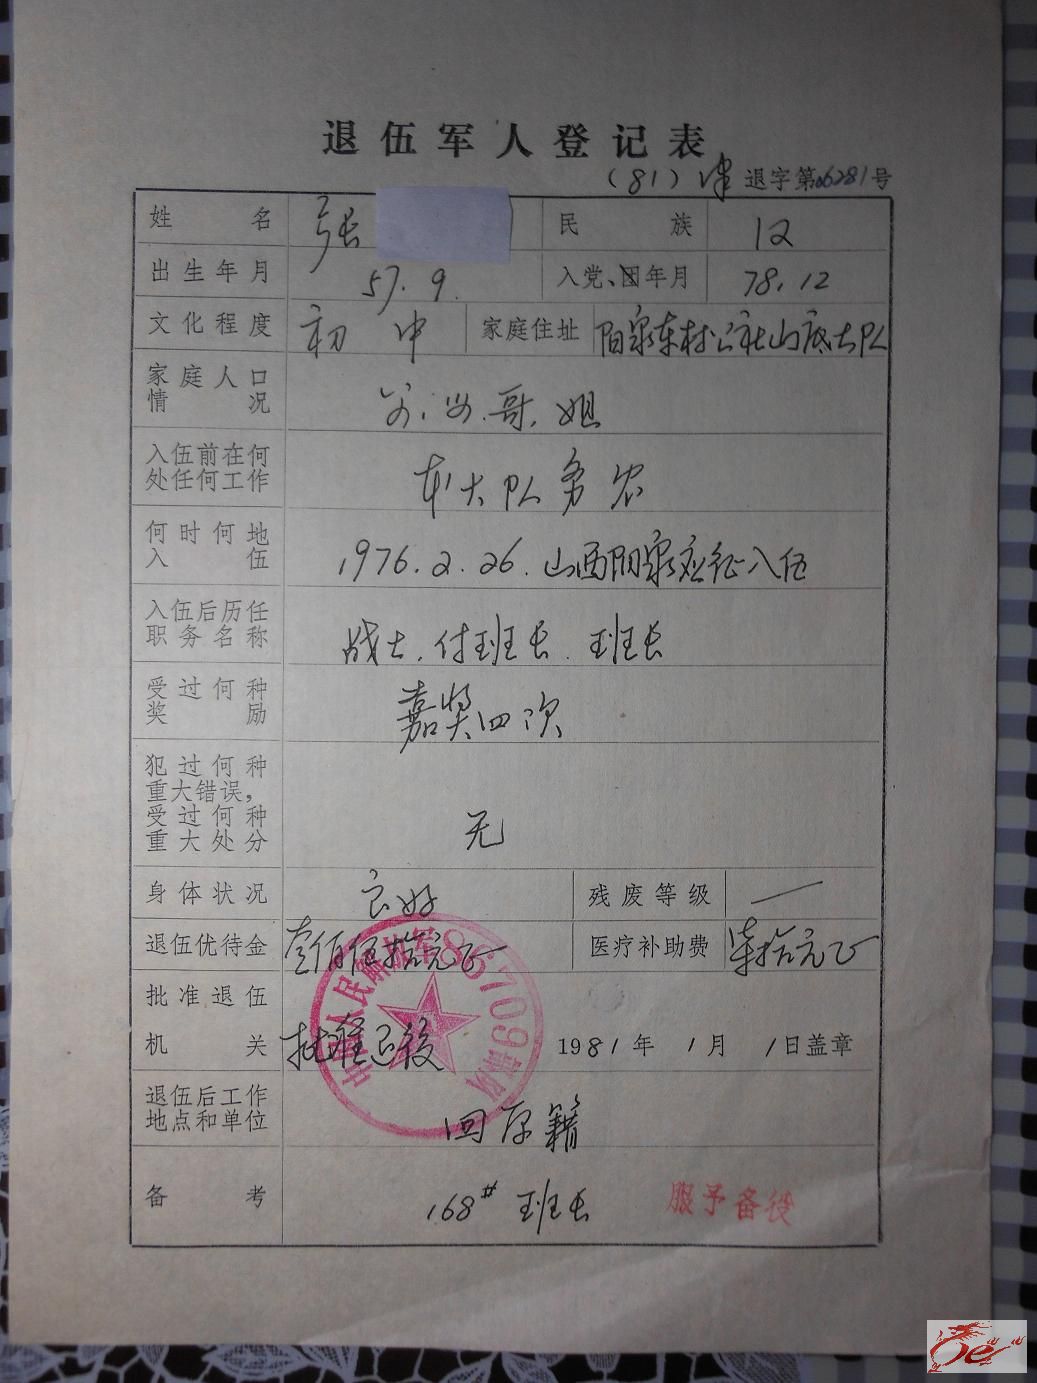 退伍军人登记表
(81)津退字第06281号
姓名 张 民族 汉
出生年月 57.9. 入党、团年月 78.12
文化程度 初中 家庭住址 阳泉东村公社山底大队
家庭人口
情况 父.母.哥.姐
入伍前在何
处任何工作 本大队务农
何时何地
入伍 1976.2.26.山西阳泉应征入伍
入伍后历任
职务名称 战士.付班长.班长
受过何种
奖励 嘉奖四次
犯过何种
重大错误,
受过何种
重大处分 无
身体状况 良好 残废等级 —
退伍优待金 壹佰伍拾元正 医疗补助费 柒拾元正
批准退伍
机关 批准退役 1981年1月1日盖章
中国人民解放军86709部队
退伍后工作
地点和单位 回原籍
备考 168# 班长 服予备役